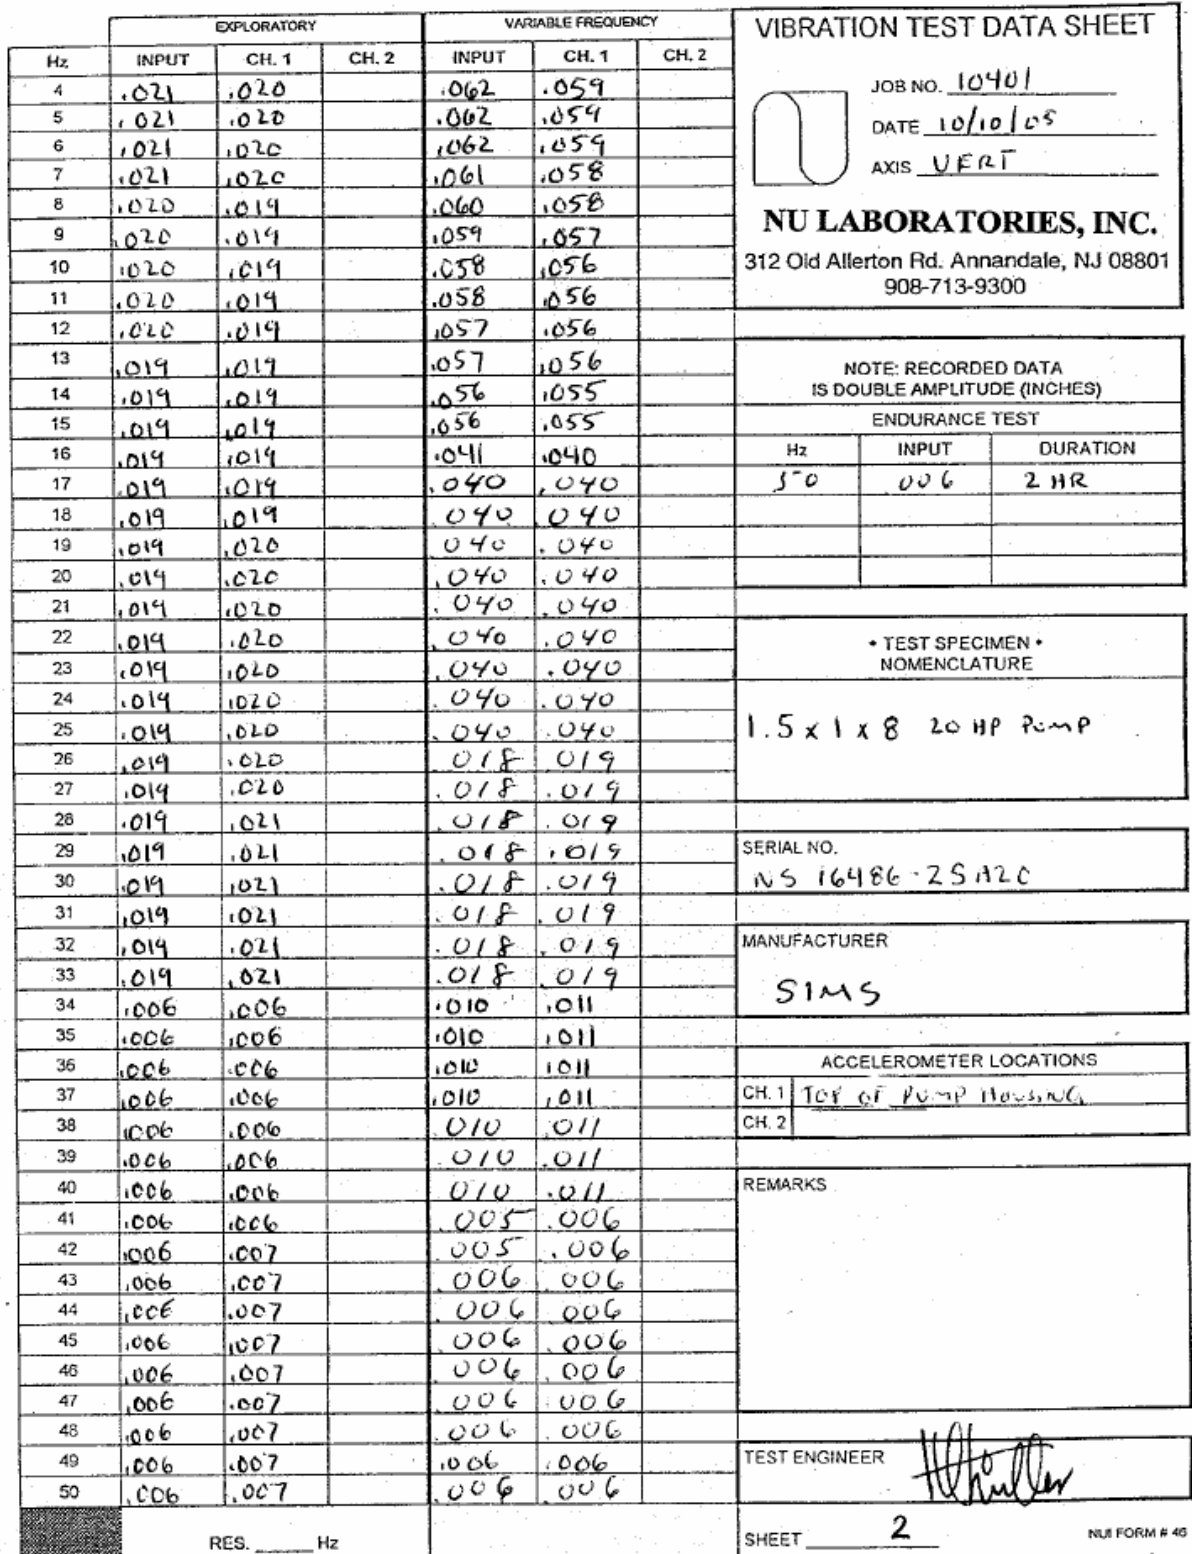 EXPLORATORY VARIABLE FREQUENCY
Hz INPUT CH. 1 CH. 2 INPUT CH. 1 CH. 2
4 .021 .020 .062 .059
5 .021 .020 .062 .059
6 .021 .020 .062 .059
7 .021 .020 .061 .058
8 .020 .019 .060 .058
9 .020 .019 .059 .057
10 .020 .019 .058 .056
11 .020 .019 .058 .056
12 .020 .019 .057 .056
13 .019 .019 .057 .056
14 .019 .019 .056 .055
15 .019 .019 .056 .055
16 .019 .019 .041 .040
17 .019 .019 .040 .040
18 .019 .019 .040 .040
19 .019 .020 040 .040
20 .019 .020 .040 .040
21 .019 .020 .040 .040
22 .019 .020 .040 .040
23 .019 .020 .040 .040
24 .019 .020 .040 .040
25 .019 .020 .040 .040
26 .019 .020 .018 019
27 .019 .020 .018 .019
28 .019 .021 .018 .019
29 .019 .021 .018 .019
30 .019 .021 .018 .019
31 .019 .021 .018 .019
32 .019 .021 .018 .019
33 .019 .021 .018 .019
34 .006 .006 .010 .011
35 .006 .006 .010 .011
36 .006 .006 .010 .011
37 .006 .006 .010 .011
38 .006 .006 .010 .011
39 .006 .006 .010 .011
40 .006 .006 .010 .011
41 .006 .006 .005 .006
42 .006 .007 .005 .006
43 .006 .007 .006 .006
44 .006 .007 .006 .006
45 .006 .007 .006 .006
46 .006 .007 .006 .006
47 .006 .007 .006 .006
48 .006 .007 .006 .006
49 .006 .007 .006 .006
50 .006 .007 .006 .006
RES. ____ Hz
VIBRATION TEST DATA SHEET
JOB NO. 10401
DATE 10/10/05
AXIS VERT
NU LABORATORIES, INC.
312 Old Allerton Rd. Annandale, NJ 08801
908-713-9300
NOTE: RECORDED DATA
IS DOUBLE AMPLITUDE (INCHES)
ENDURANCE TEST
Hz INPUT DURATION
50 006 2 HR
• TEST SPECIMEN •
NOMENCLATURE
1.5 x 1 x 8 20 HP PUMP
SERIAL NO.
NS 16486-
MANUFACTURER
SIMS
ACCELEROMETER LOCATIONS
CH. 1 TOP OF PUMP HOUSING
CH. 2
REMARKS
TEST ENGINEER
SHEET 2
NUI FORM # 46